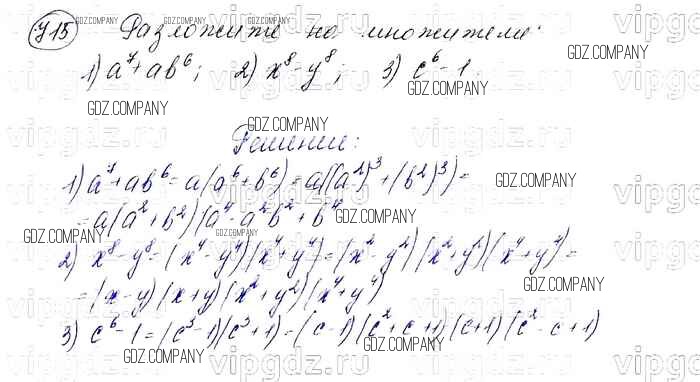 715 Разложите на множители:
1) a⁷+ab⁶; 2) x⁸-y⁸; 3) c⁶-1.
Решение:
1) a⁷+ab⁶=a(a⁶+b⁶)=a((a²)³+(b²)³)=
=a(a²+b²)(a⁴-a²b²+b⁴
2) x⁸-y⁸=(x⁴-y⁴)(x⁴+y⁴)=(x²-y²)(x²+y²)(x⁴+y⁴)=
=(x-y)(x+y)(x²+y²)(x⁴+y⁴)
3) c⁶-1=(c³-1)(c³+1)=(c-1)(c²+c+1)(c+1)(c²-c+1)
GDZ.COMPANY
vipgdz.ru